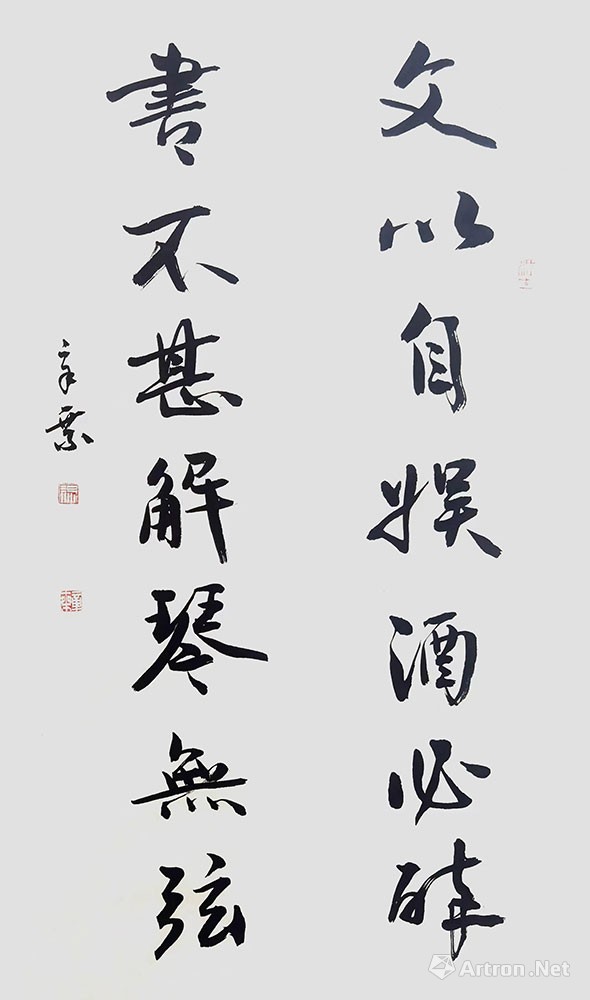 文以自娱酒必醉
書不甚解琴無弦
Artron.Net